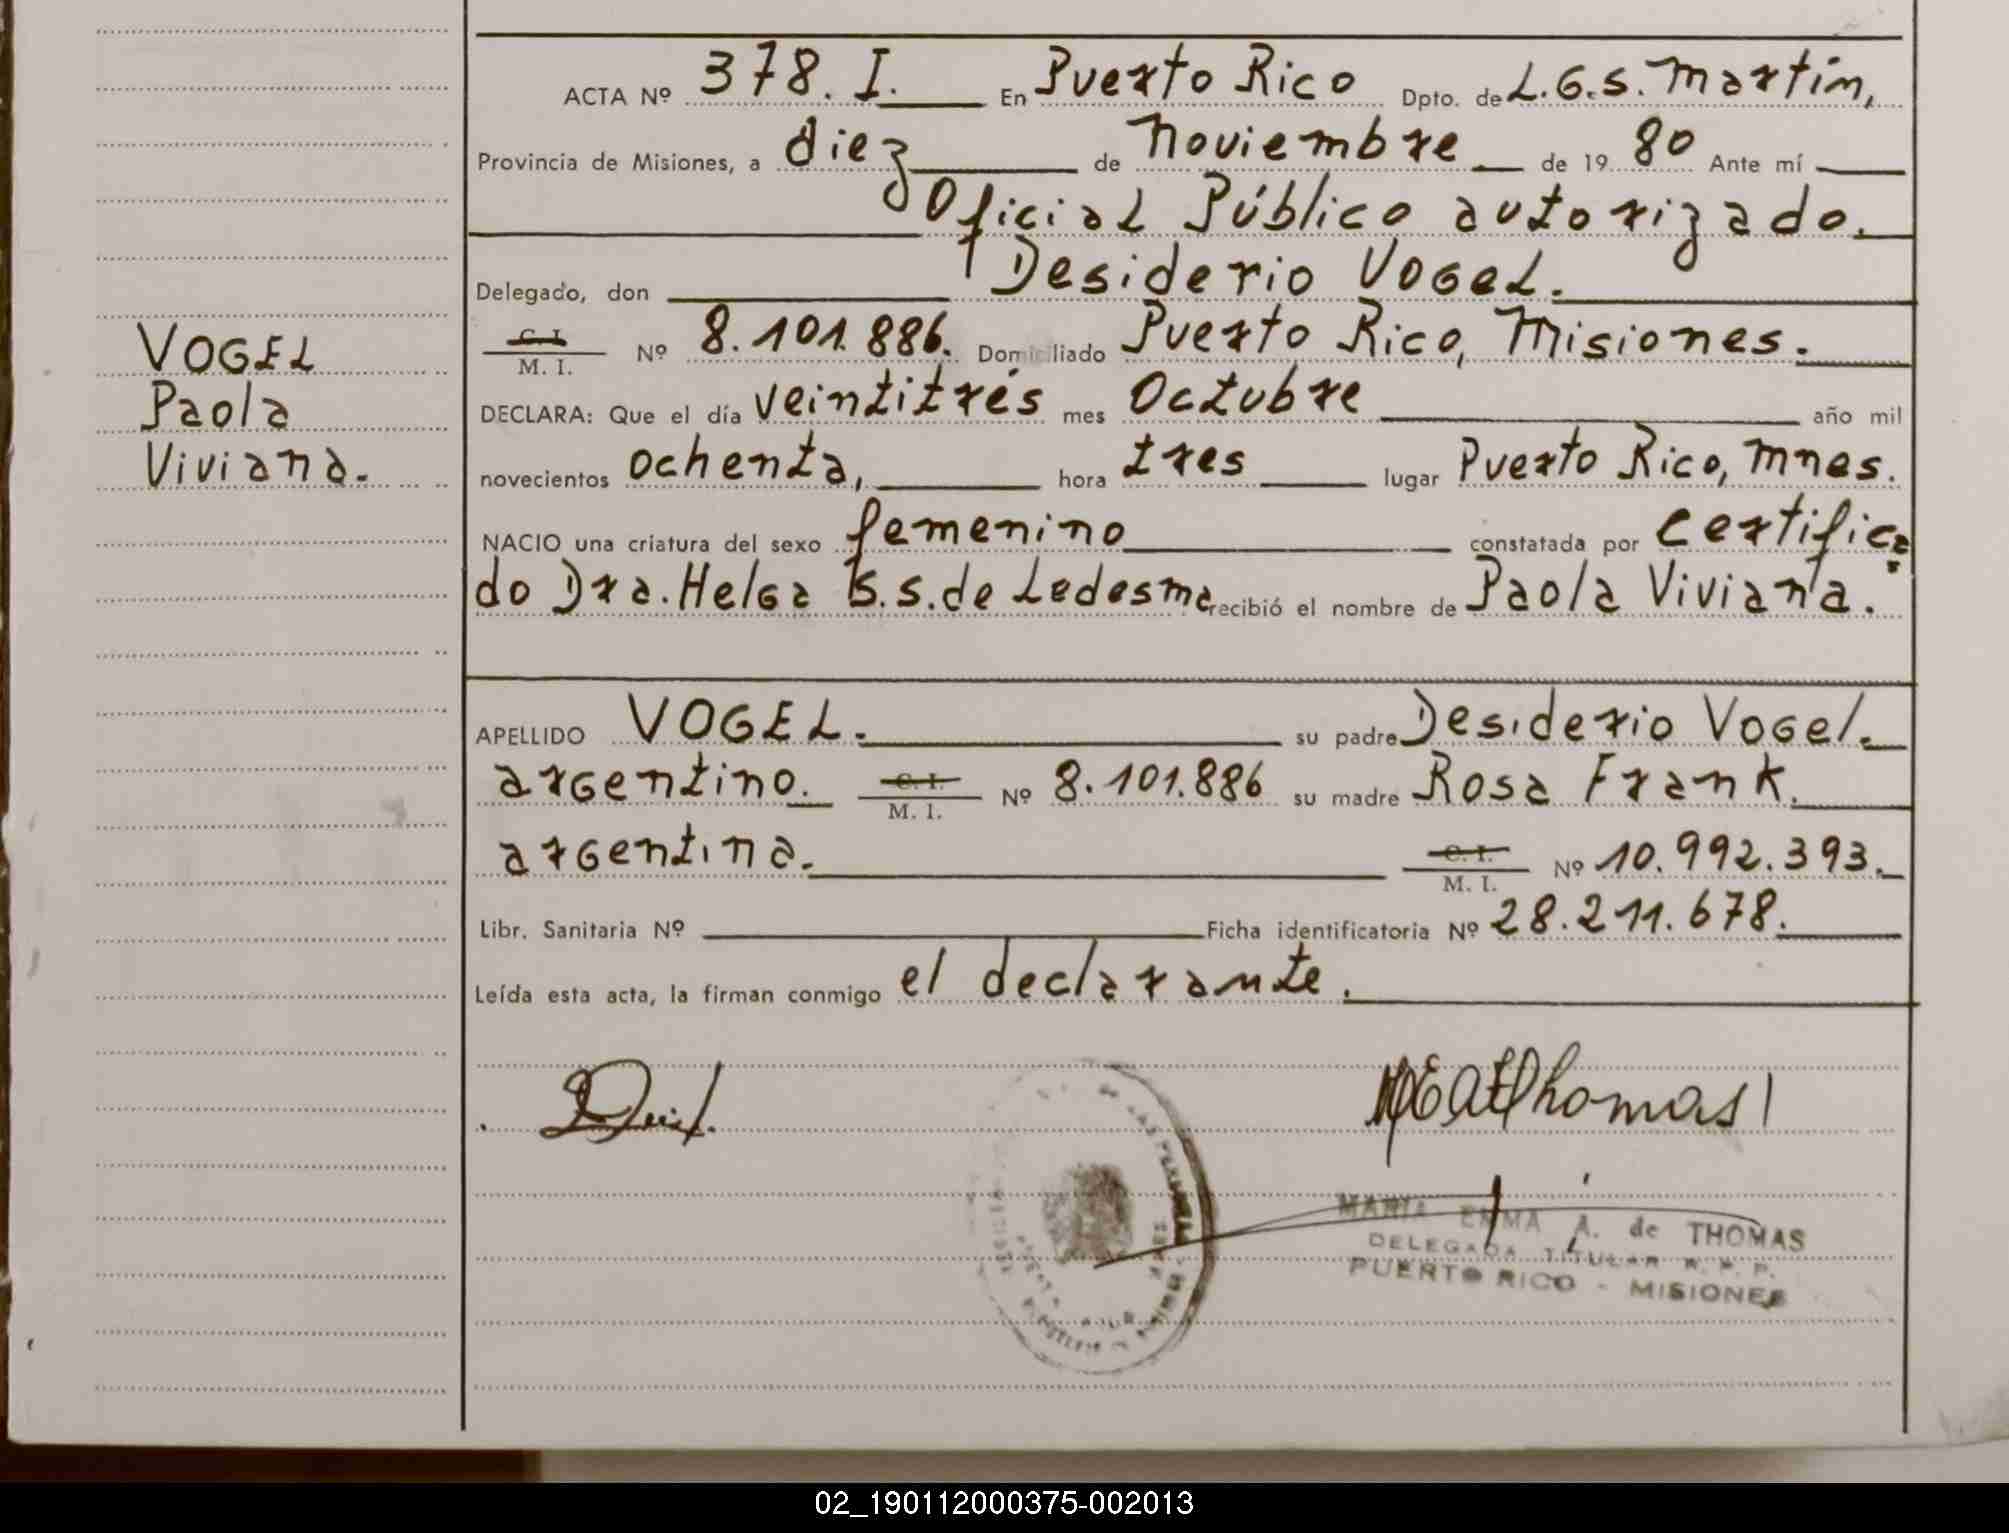 ACTA Nº 378. I. En Puerto Rico Dpto. de L.G.S. Martín,
Provincia de Misiones, a diez de Noviembre de 19 80 Ante mí
Oficial Público autorizado.
Delegado, don Desiderio Vogel.
C. I. / M. I. Nº 8.101.886. Domiciliado Puerto Rico, Misiones.
VOGEL
Paola
Viviana.
DECLARA: Que el día veintitrés mes Octubre año mil
novecientos ochenta, hora tres lugar Puerto Rico, Mnes.
NACIO una criatura del sexo femenino constatada por Certifica
do Dra. Helga B.S. de Ledesma recibió el nombre de Paola Viviana.
APELLIDO VOGEL. su padre Desiderio Vogel.
argentino. C. I. / M. I. Nº 8.101.886 su madre Rosa Frank.
argentina. C. I. / M. I. Nº 10.992.393.
Libr. Sanitaria Nº Ficha identificatoria Nº 28.211.678.
Leída esta acta, la firman conmigo el declarante.
MARIA EMMA A. de THOMAS
DELEGADA TITULAR R. P. P.
PUERTO RICO - MISIONES
02_190112000375-002013